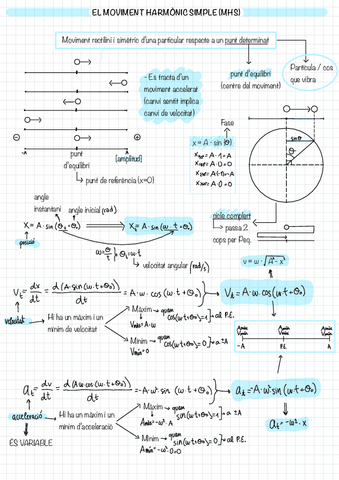 EL MOVIMENT HARMÒNIC SIMPLE (MHS)
Moviment rectilini i simètric d'una particular respecte a un punt determinat
Partícula / cos
que vibra
punt d'equilibri
(centre del moviment)
- Es tracta d'un
moviment accelerat
(canvi sentit implica
canvi de velocitat)
Fase
x = A · sin θ
-A
punt
d'equilibri
[amplitud]
+A
punt de referència (x=0)
sinθ
θ
angle
instantani
angle inicial (rad)
x = A · sin (θt + θ0)
x = A · sin (ω · t + θ0)
posició
ω = θ/t
θt = ω · t
velocitat angular (rad/s)
cicle complert
passa 2
cops per P.eq.
v = ω · √A² - x²
Vt = dx/dt = d (A · sin (ω · t + θ0))/dt = A · ω · cos (ω · t + θ0)
Vt = A · ω · cos (ωt + θ0)
velocitat
Hi ha un màxim i un
mínim de velocitat
Màxim → quan
cos(ωt+θ0)=1 → al P.E.
Vmàx = A · ω
Mínim → quan
cos(ωt+θ0)=0 → a ±A
Vmín = 0
-A
P.E.
+A
at = dv/dt = d (Aω cos (ω · t + θ0))/dt = -A · ω² · sin (ω · t + θ0)
at = -A · ω² sin (ωt + θ0)
at = -ω² · x
acceleració
Hi ha un màxim i un
mínim d'acceleració
ÉS VARIABLE
Màxim → quan
sin(ωt+θ0)=1 → a ±A
Amàx = -ω² · A
Mínim → quan
sin(ωt+θ0)=0 → al P.E.